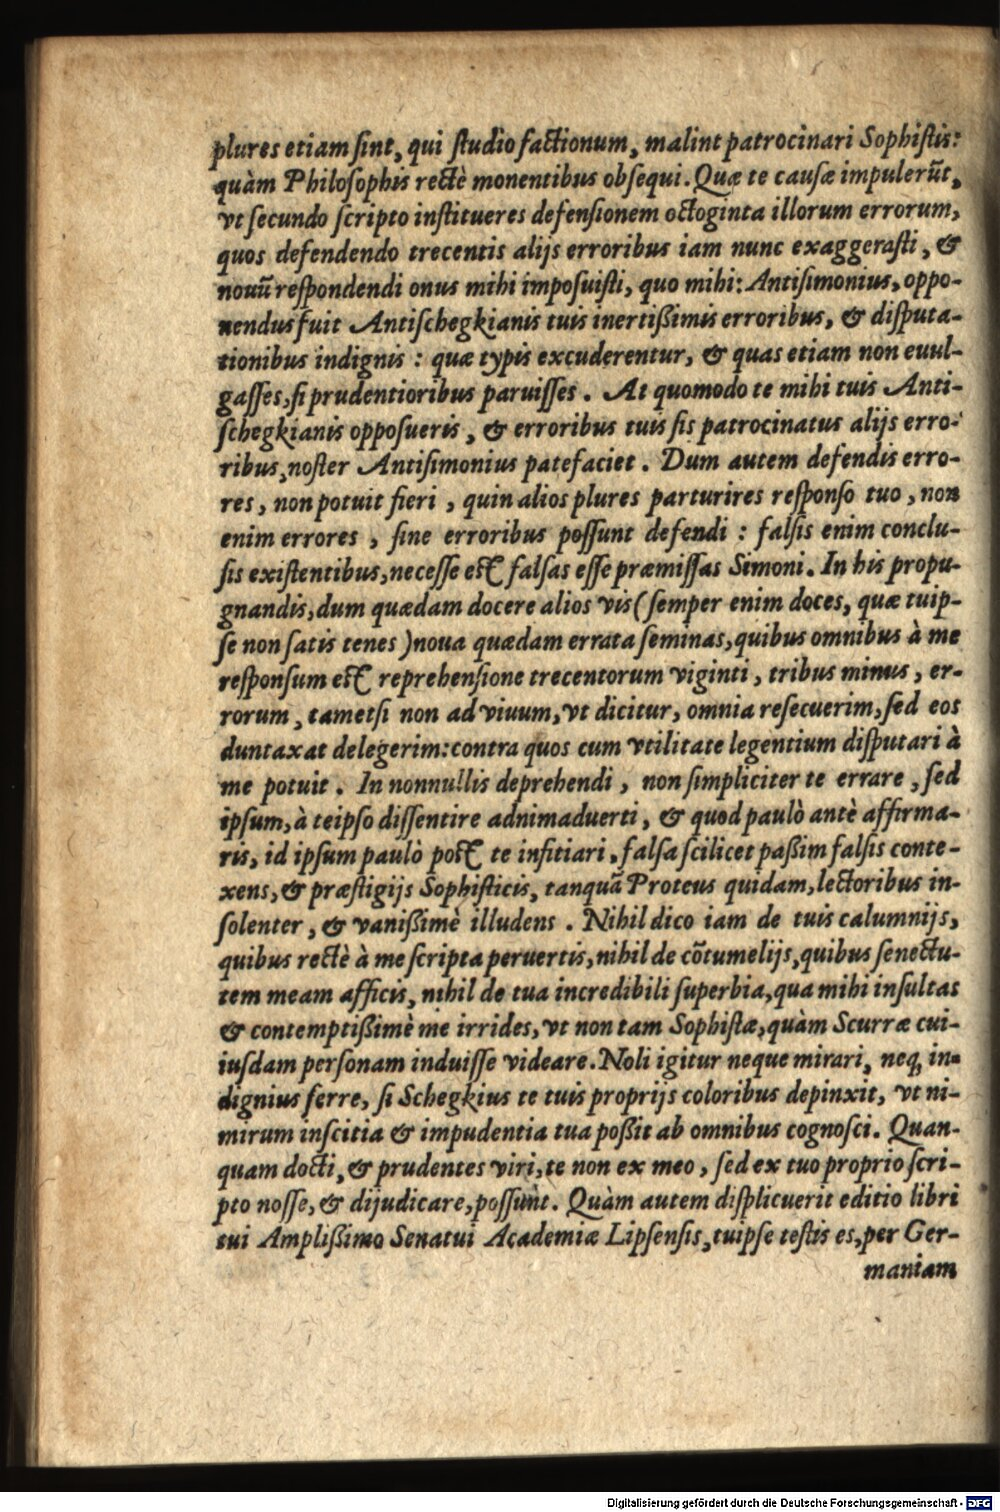 plures etiam ſint, qui ſtudio factionum, malint patrocinari Sophiſtis:
quàm Philoſophis rectè monentibus obſequi. Quæ te cauſæ impulerūt,
vt ſecundo ſcripto inſtitueres defenſionem octoginta illorum errorum,
quos defendendo trecentis alijs erroribus iam nunc exaggeraſti, &
nouū reſpondendi onus mihi impoſuiſti, quo mihi: Antiſimonius, oppo-
nendus fuit Antiſchegkianis tuis inertißimis erroribus, & diſputa-
tionibus indignis : quæ typis excuderentur, & quas etiam non euul-
gaſſes, ſi prudentioribus paruiſſes . At quomodo te mihi tuis Anti-
ſchegkianis oppoſueris , & erroribus tuis ſis patrocinatus alijs erro-
ribus, noſter Antiſimonius patefaciet . Dum autem defendis erro-
res , non potuit fieri , quin alios plures parturires reſponſo tuo , non
enim errores , ſine erroribus poſſunt defendi : falſis enim conclu-
ſis exiſtentibus, neceſſe eſt falſas eſſe præmiſſas Simoni. In his propu-
gnandis, dum quædam docere alios vis (ſemper enim doces, quæ tuip-
ſe non ſatis tenes ) noua quædam errata ſeminas, quibus omnibus à me
reſponſum eſt reprehenſione trecentorum viginti , tribus minus , er-
rorum , tametſi non ad viuum, vt dicitur, omnia reſecuerim, ſed eos
duntaxat delegerim: contra quos cum vtilitate legentium diſputari à
me potuit . In nonnullis deprehendi , non ſimpliciter te errare , ſed
ipſum, à teipſo diſſentire adnimaduerti , & quod paulò antè affirma-
ris, id ipſum paulò poſt te inſitiari , falſa ſcilicet paßim falſis conte-
xens, & præſtigijs Sophiſticis, tanquā Proteus quidam, lectoribus in-
ſolenter , & vanißimè illudens . Nihil dico iam de tuis calumnijs,
quibus rectè à me ſcripta peruertis, nihil de cōtumelijs, quibus ſenectu-
tem meam afficis, nihil de tua incredibili ſuperbia, qua mihi inſultas
& contemptißimè me irrides, vt non tam Sophiſtæ, quàm Scurræ cui-
iuſdam perſonam induiſſe videare. Noli igitur neque mirari, neq, in-
dignius ferre, ſi Schegkius te tuis proprijs coloribus depinxit, vt ni-
mirum inſcitia & impudentia tua poßit ab omnibus cognoſci. Quan-
quam docti, & prudentes viri, te non ex meo , ſed ex tuo proprio ſcri-
pto noſſe, & dijudicare, poſſunt. Quàm autem diſplicuerit editio libri
tui Amplißimo Senatui Academiæ Lipſenſis, tuipſe teſtis es, per Ger-
maniam
Digitalisierung gefördert durch die Deutsche Forschungsgemeinschaft - DFG